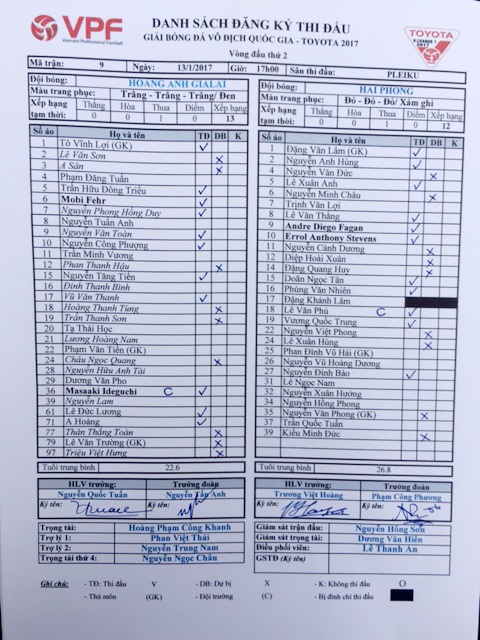 VPF
Vietnam Professional Football
DANH SÁCH ĐĂNG KÝ THI ĐẤU
GIẢI BÓNG ĐÁ VÔ ĐỊCH QUỐC GIA - TOYOTA 2017
Vòng đấu thứ 2
TOYOTA
V.LEAGUE 1
2017
Mã trận: 9 Ngày: 13/1/2017 Giờ: 17h00 Sân thi đấu: PLEIKU
Đội bóng: HOÀNG ANH GIALAI
Màu trang phục: Trắng - Trắng - Trắng/ Đen
Xếp hạng tạm thời: Thắng Hòa Thua Điểm Xếp hạng
0 0 1 0 13
Số áo Họ và tên TĐ DB K
1 Tô Vĩnh Lợi (GK) ✓
2 Lê Văn Sơn x
3 A Sân x
4 Phạm Đăng Tuấn
5 Trần Hữu Đông Triều ✓
6 Mobi Fehr ✓
7 Nguyễn Phong Hồng Duy ✓
8 Nguyễn Tuấn Anh
9 Nguyễn Văn Toàn ✓
10 Nguyễn Công Phượng ✓
11 Trần Minh Vương
12 Phan Thanh Hậu x
15 Nguyễn Tăng Tiến ✓
16 Đinh Thanh Bình
17 Vũ Văn Thanh ✓
18 Hoàng Thanh Tùng x
19 Trần Thanh Sơn x
20 Tạ Thái Học
21 Lương Hoàng Nam
22 Phạm Văn Tiến (GK)
24 Châu Ngọc Quang x
28 Nguyễn Hữu Anh Tài
29 Dương Văn Pho
36 Masaaki Ideguchi C ✓
39 Nguyễn Lam
61 Lê Đức Lương ✓
71 A Hoàng ✓
77 Thân Thắng Toàn x
79 Lê Văn Trường (GK) x
97 Triệu Việt Hưng x
Tuổi trung bình 22.6
HLV trưởng: Trưởng đoàn
Nguyễn Quốc Tuấn Nguyễn Tấn Anh
Ký tên: Ký tên:
Đội bóng: HẢI PHÒNG
Màu trang phục: Đỏ - Đỏ - Đỏ/ Xám ghi
Xếp hạng tạm thời: Thắng Hòa Thua Điểm Xếp hạng
0 0 1 0 12
Số áo Họ và tên TĐ DB K
1 Đặng Văn Lâm (GK) ✓
2 Nguyễn Anh Hùng ✓
4 Nguyễn Văn Đức x
5 Lê Xuân Anh ✓
6 Nguyễn Minh Châu x
7 Trịnh Văn Lợi
8 Lê Văn Thắng ✓
9 Andre Diego Fagan ✓
10 Errol Anthony Stevens ✓
11 Nguyễn Cảnh Dương x
12 Diệp Hoài Xuân x
14 Đặng Quang Huy x
15 Doãn Ngọc Tân ✓
16 Phùng Văn Nhiên ✓
17 Đặng Khánh Lâm
18 Lê Văn Phú C ✓
19 Vương Quốc Trung ✓
22 Nguyễn Việt Phong x
24 Lê Xuân Hùng x
25 Phan Đình Vũ Hải (GK)
26 Nguyễn Vũ Hoàng Dương
27 Nguyễn Đình Bảo ✓
31 Lê Ngọc Nam
32 Nguyễn Xuân Hưởng
34 Nguyễn Hồng Phong
35 Nguyễn Văn Phong (GK) x
37 Trần Quốc Tuấn
39 Kiều Minh Đức x
Tuổi trung bình 26.8
HLV trưởng: Trưởng đoàn
Trương Việt Hoàng Phạm Công Phương
Ký tên: Ký tên:
Trọng tài: Hoàng Phạm Công Khanh
Trợ lý 1: Phan Việt Thái
Trợ lý 2: Nguyễn Trung Nam
Trọng tài thứ 4: Nguyễn Ngọc Châu
Giám sát trận đấu: Nguyễn Hồng Sơn
Giám sát trọng tài: Dương Văn Hiền
Điều phối viên: Lê Thanh An
GSTĐ (Ký tên)
Ghi chú: - TĐ: Thi đấu V - DB: Dự bị X - K: Không thi đấu O
- Thủ môn (GK) - Đội trưởng (C) - Bị đình chỉ thi đấu